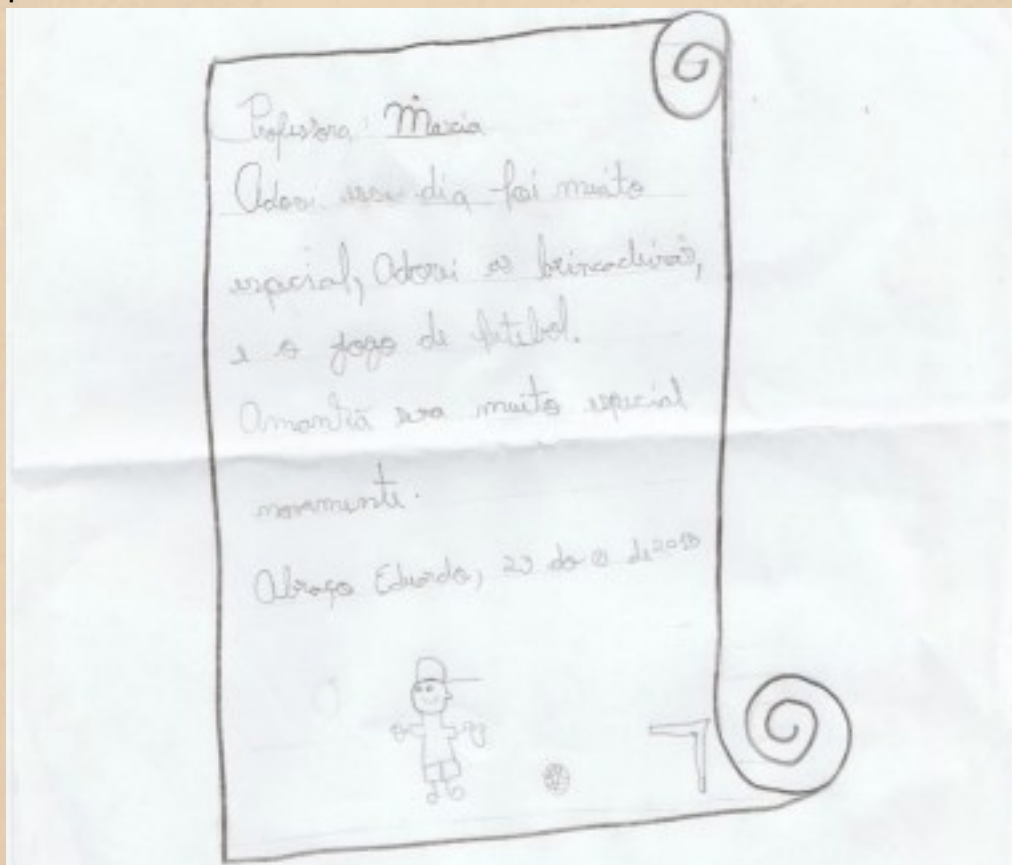 Professora: Marcia
Adorei esse dia foi muito
especial, Adorei as brincadeiras,
e o jogo de futebol.
Amanhã sera muito especial
novamente.
Abraço Eduardo, 23 do de 2010